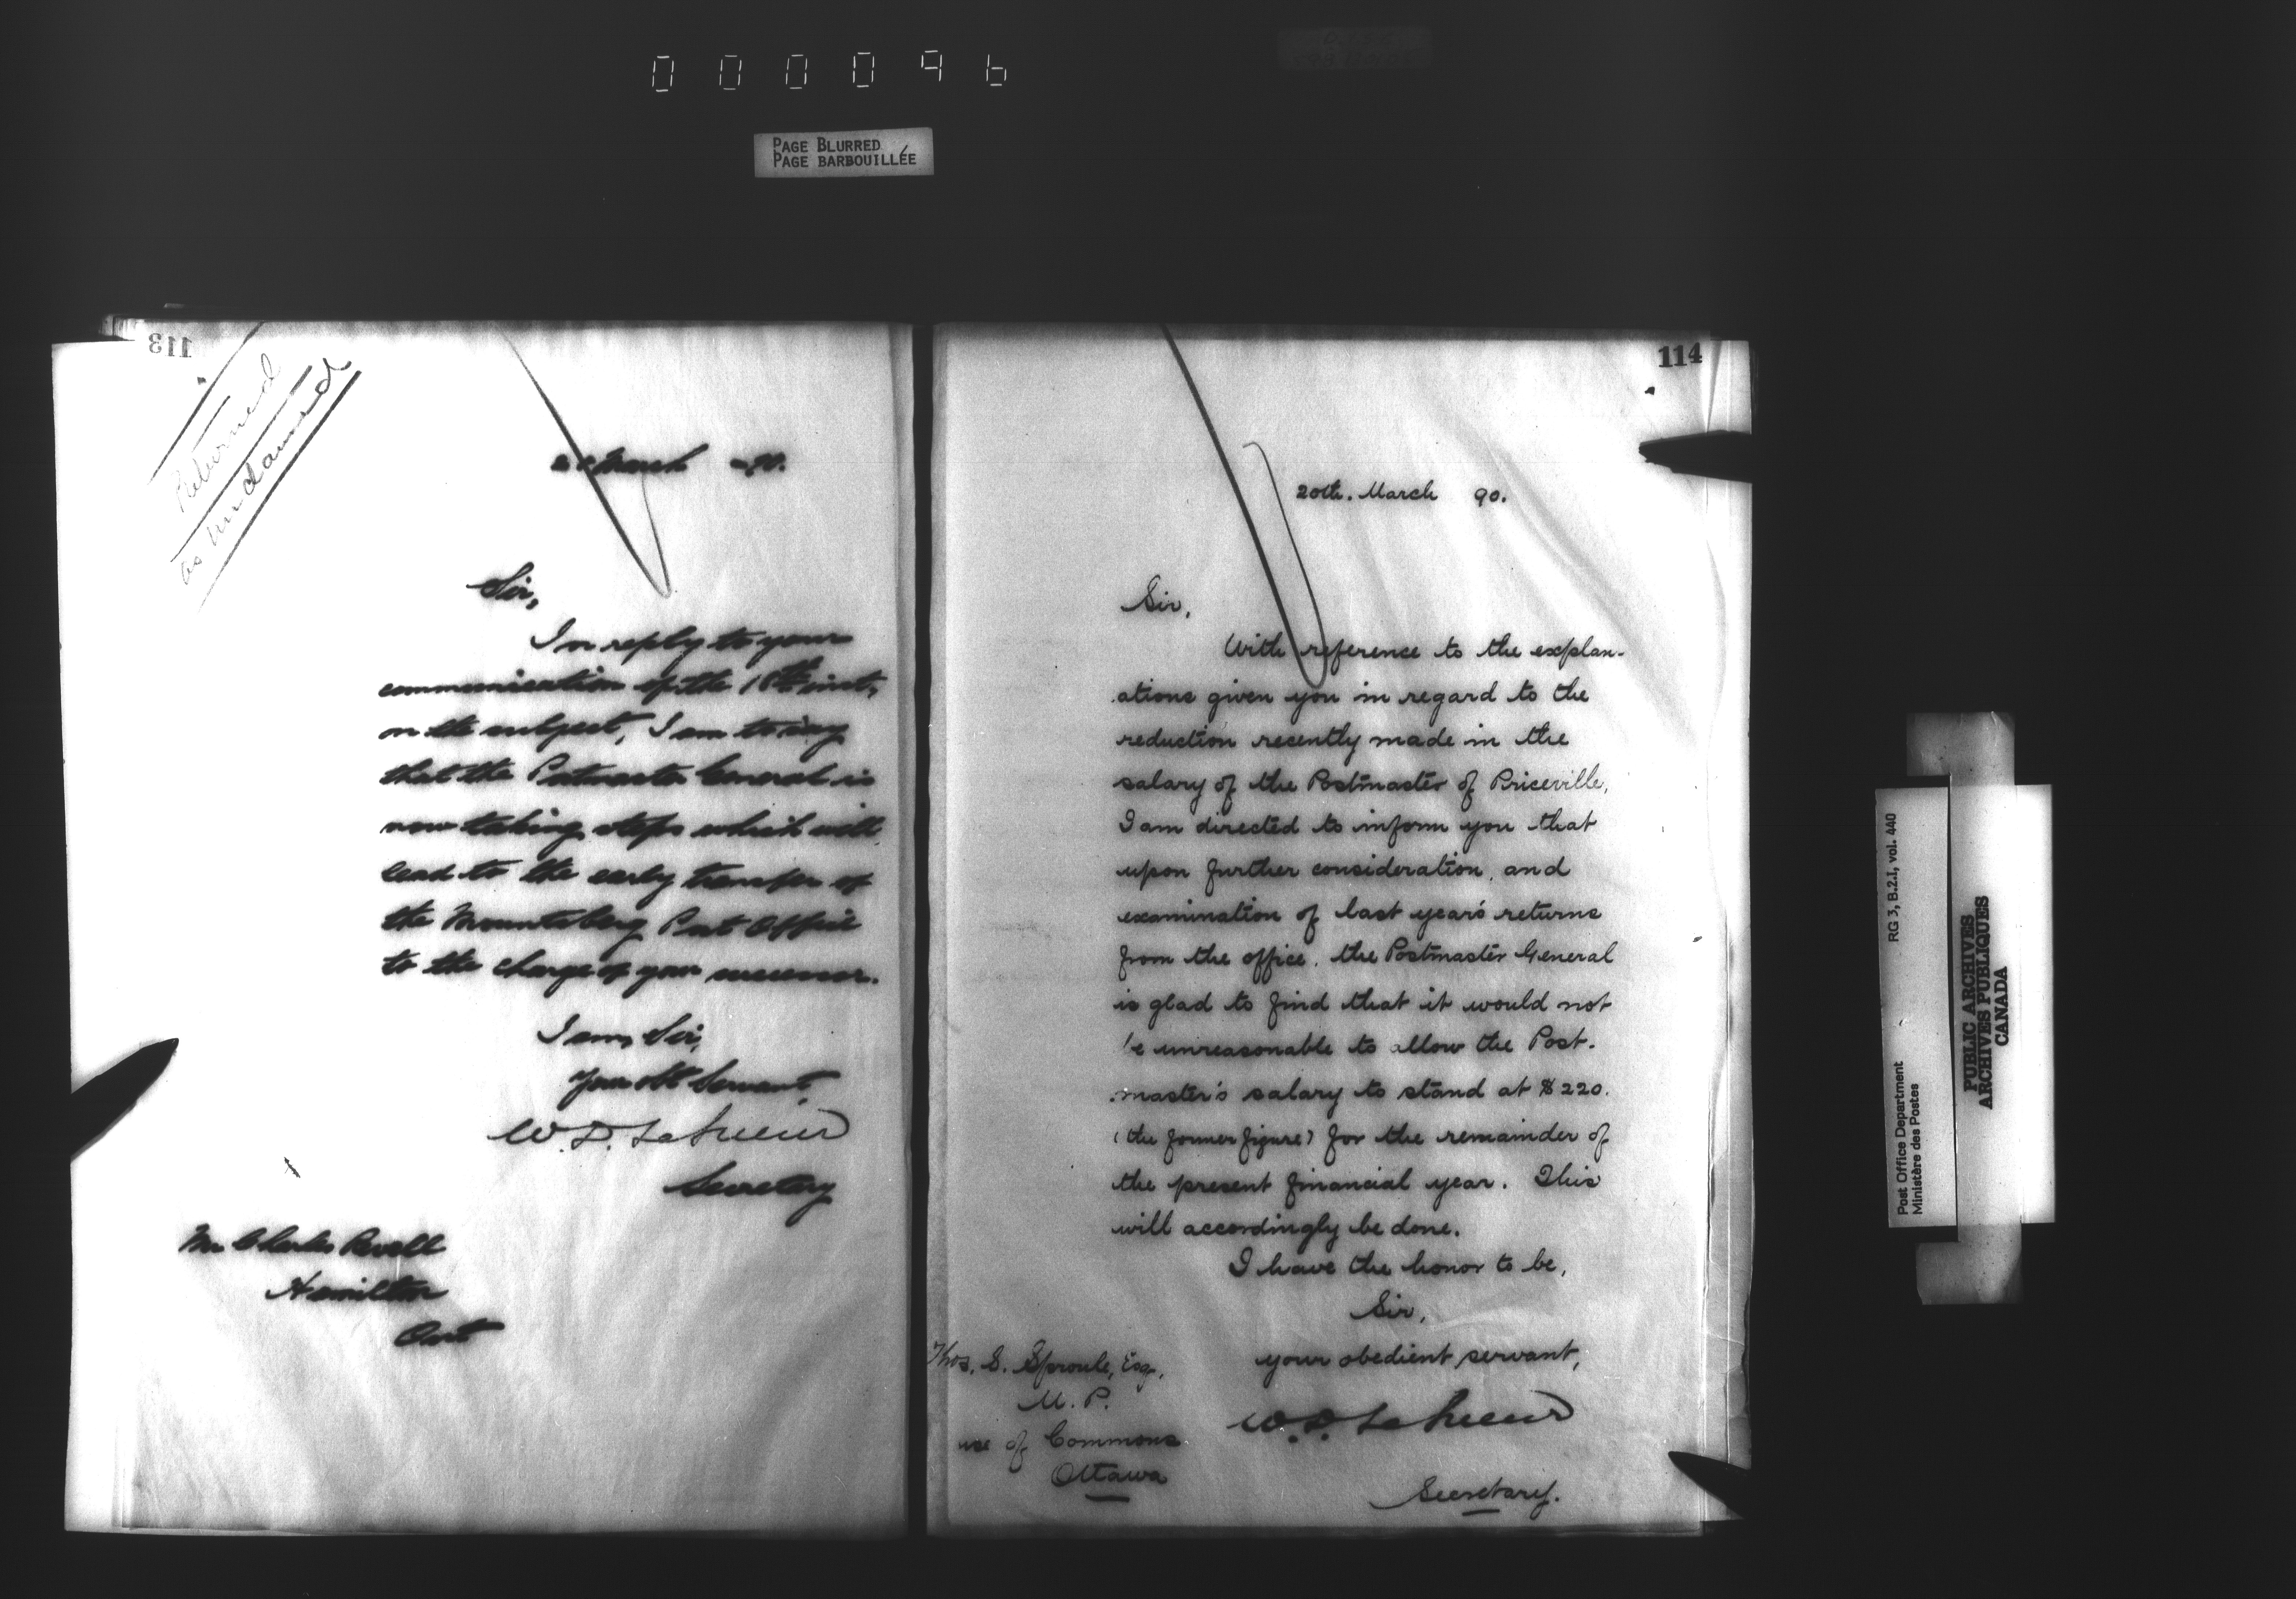 000096
PAGE BLURRED
PAGE BARBOUILLÉE
113
Returned
as unclaimed
20 March 90.
Sir,
In reply to your
communication of the 18th inst,
on the subject, I am to say
that the Postmaster General is
now taking steps which will
lead to the early transfer of
the Mountsberg Post Office
to the charge of your successor.
I am, Sir,
Your obt Servant,
W. D. LeSueur
Secretary
Mr Charles Revell
Hamilton
Ont
114
20th. March 90.
Sir,
With reference to the explan-
ations given you in regard to the
reduction recently made in the
salary of the Postmaster of Priceville,
I am directed to inform you that
upon further consideration, and
examination of last year's returns
from the office, the Postmaster General
is glad to find that it would not
be unreasonable to allow the Post-
master's salary to stand at $220.
(the former figure) for the remainder of
the present financial year. This
will accordingly be done.
I have the honor to be,
Sir,
your obedient servant,
W. D. LeSueur
Secretary.
Thos. S. Sproule, Esq.
M. P.
use of Commons
Ottawa
RG 3, B.2.I, vol. 440
Post Office Department
Ministère des Postes
PUBLIC ARCHIVES
ARCHIVES PUBLIQUES
CANADA